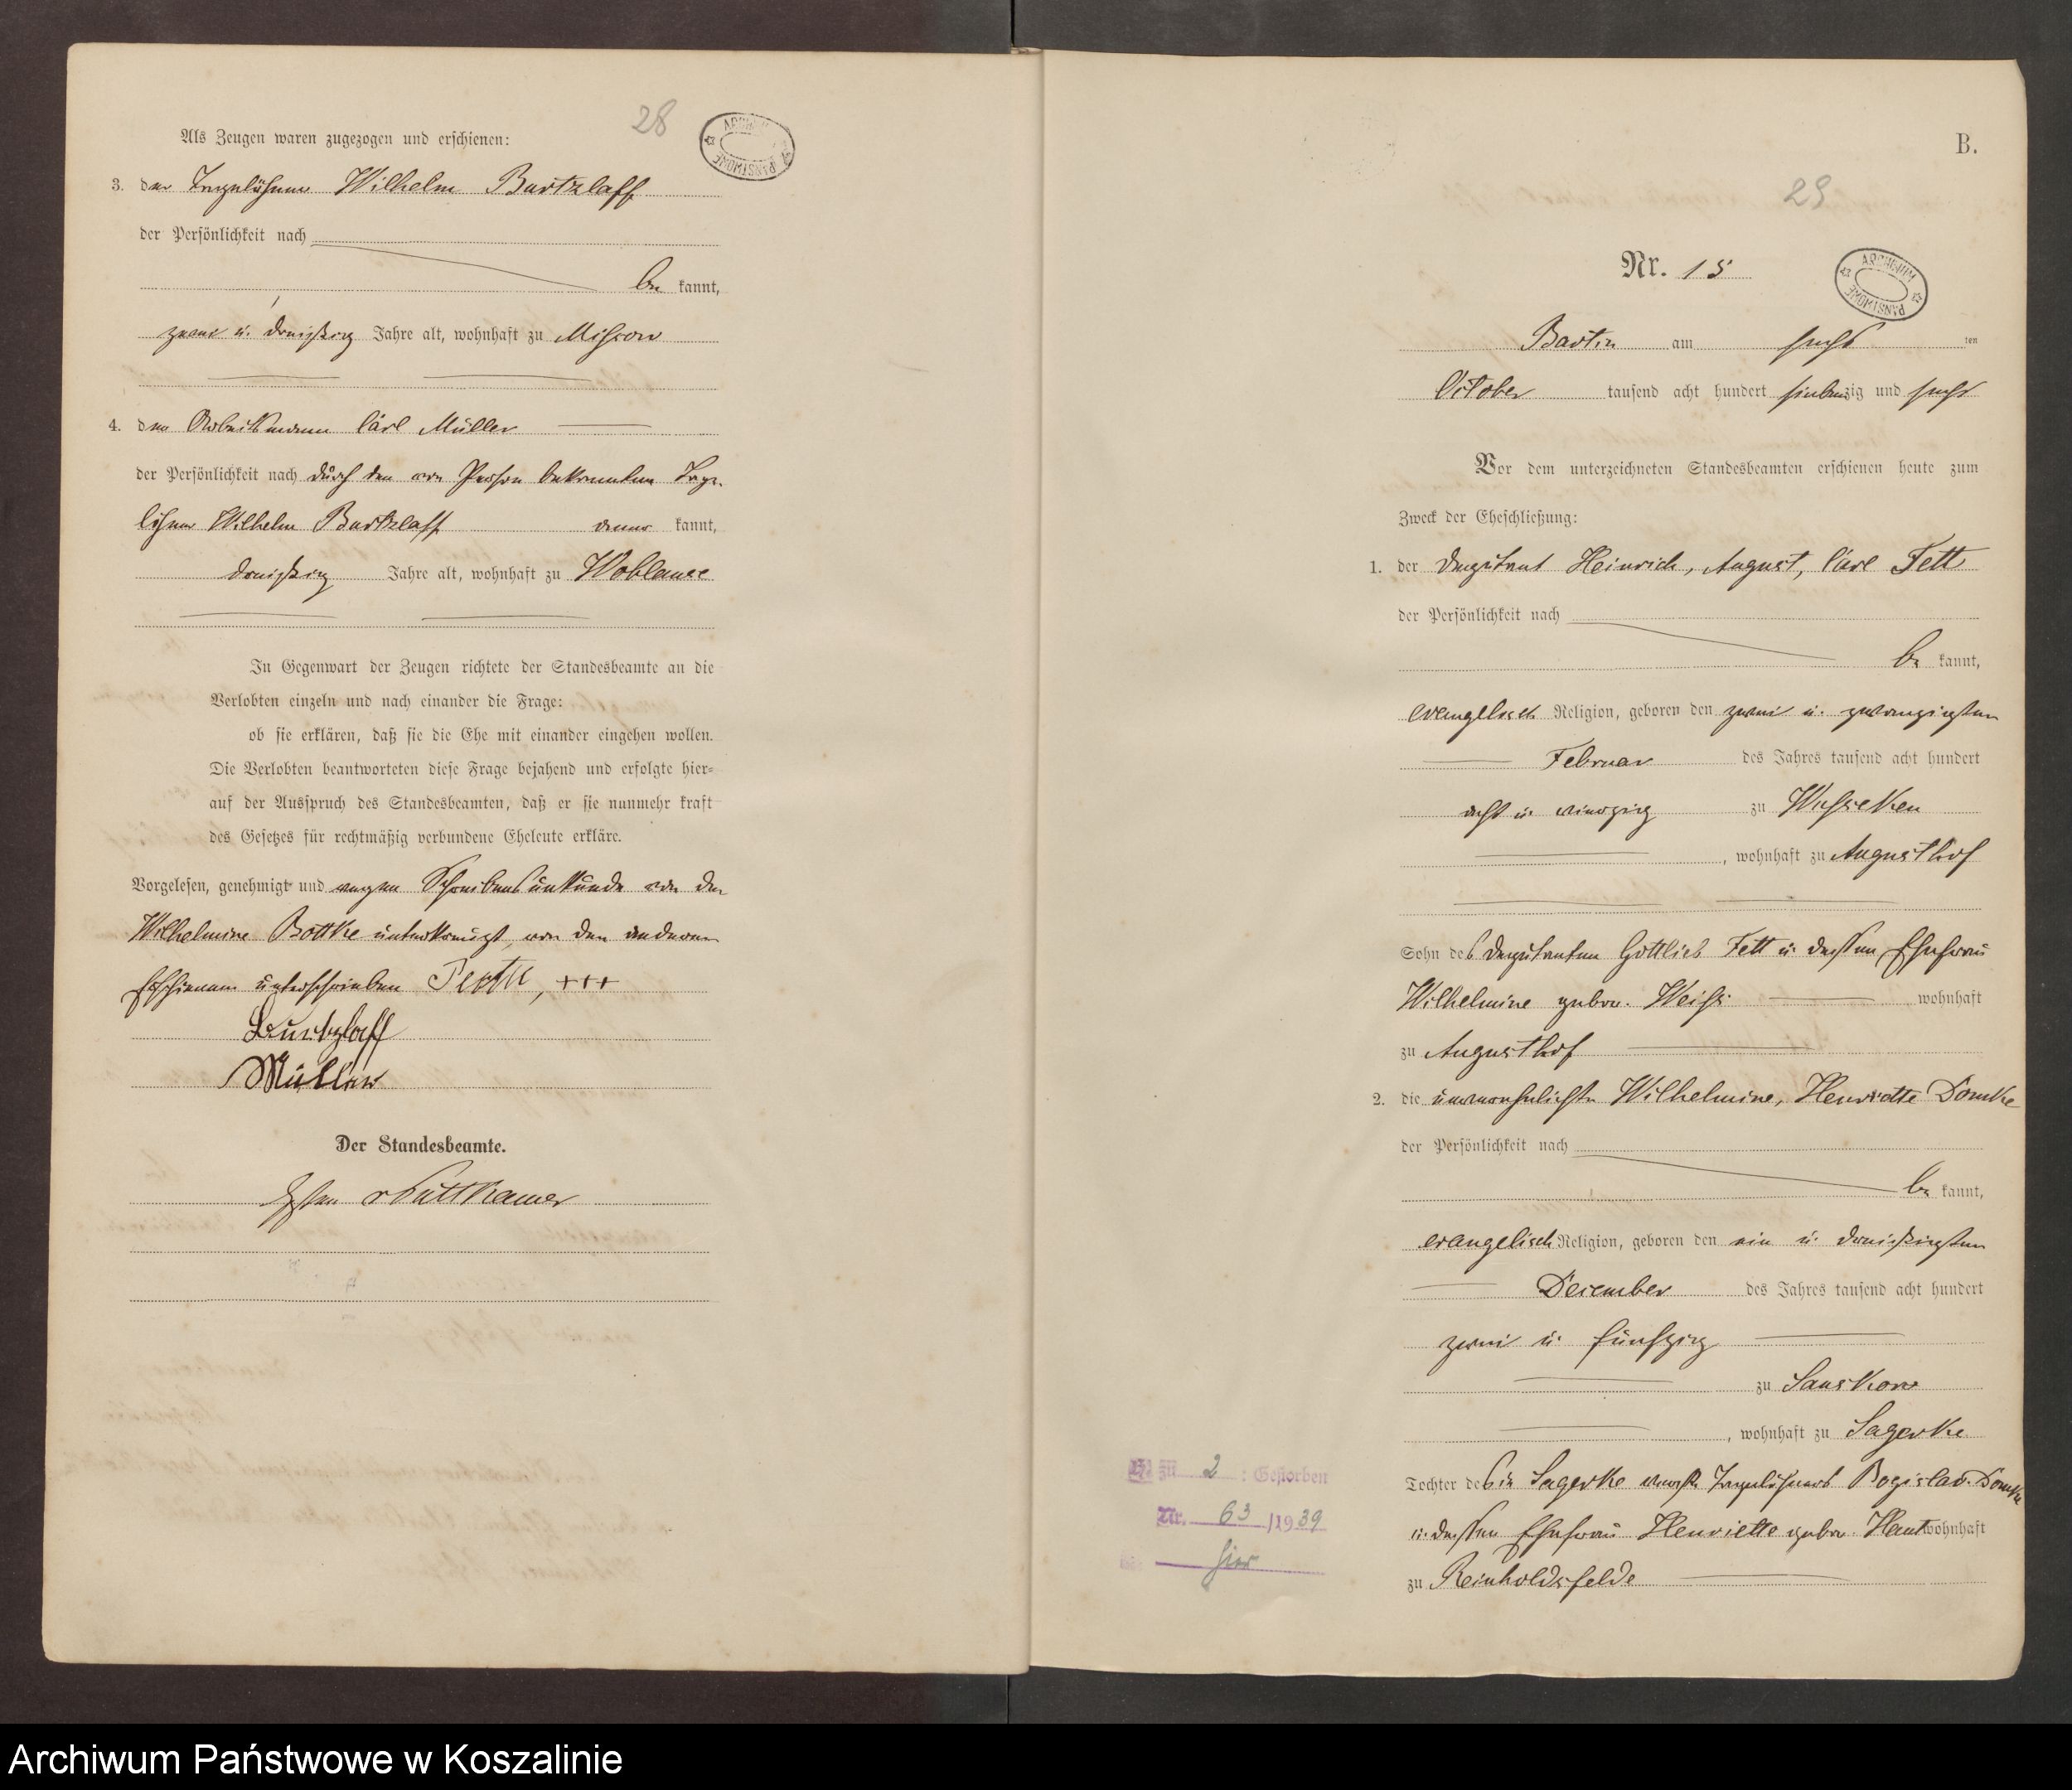 28
ARCHIWUM PAŃSTWOWE
Als Zeugen waren zugezogen und erschienen:
3. der Tagelöhner Wilhelm Bartzlaff
der Persönlichkeit nach
be kannt,
zwei u. dreißig Jahre alt, wohnhaft zu Missow
4. der Arbeitsmann Carl Müller
der Persönlichkeit nach durch den von Person bekannten Tage-
löhner Wilhelm Bartzlaff aner kannt,
dreißig Jahre alt, wohnhaft zu Woblanse
In Gegenwart der Zeugen richtete der Standesbeamte an die
Verlobten einzeln und nach einander die Frage:
ob sie erklären, daß sie die Ehe mit einander eingehen wollen.
Die Verlobten beantworteten diese Frage bejahend und erfolgte hier-
auf der Ausspruch des Standesbeamten, daß er sie nunmehr kraft
des Gesetzes für rechtmäßig verbundene Eheleute erkläre.
Vorgelesen, genehmigt und wegen Schreibensunkunde von der
Wilhelmine Bottke unterkreuzt, von den anderen
Erschienenen unterschrieben +++
Bartzlaff
Müller
Der Standesbeamte.
v Puttkamer
B.
29
Nr. 15
ARCHIWUM PAŃSTWOWE
Bartin am sechs ten
October tausend acht hundert siebenzig und sechs
Vor dem unterzeichneten Standesbeamten erschienen heute zum
Zweck der Eheschließung:
1. der Deputant Heinrich, August, Carl Fett
der Persönlichkeit nach
be kannt,
evangelisch Religion, geboren den zwei u. zwanzigsten
Februar des Jahres tausend acht hundert
acht u. vierzig zu Wusseken
, wohnhaft zu Augusthof
Sohn des Deputanten Gottlieb Fett u. dessen Ehefrau
Wilhelmine gebor. Weiß wohnhaft
zu Augusthof
2. die unverehelichte Wilhelmine, Henriette Domke
der Persönlichkeit nach
be kannt,
evangelisch Religion, geboren den ein u. dreißigsten
December des Jahres tausend acht hundert
zwei u. fünfzig
zu Sanskow
, wohnhaft zu Sagerke
Tochter des in Sagerke verst. Tagelöhners Bogislav Domke
u. dessen Ehefrau Henriette gebor. wohnhaft
zu Reinholdsfelde
zu 2 : Gestorben
Nr. 63 /1939
hier
Archiwum Państwowe w Koszalinie